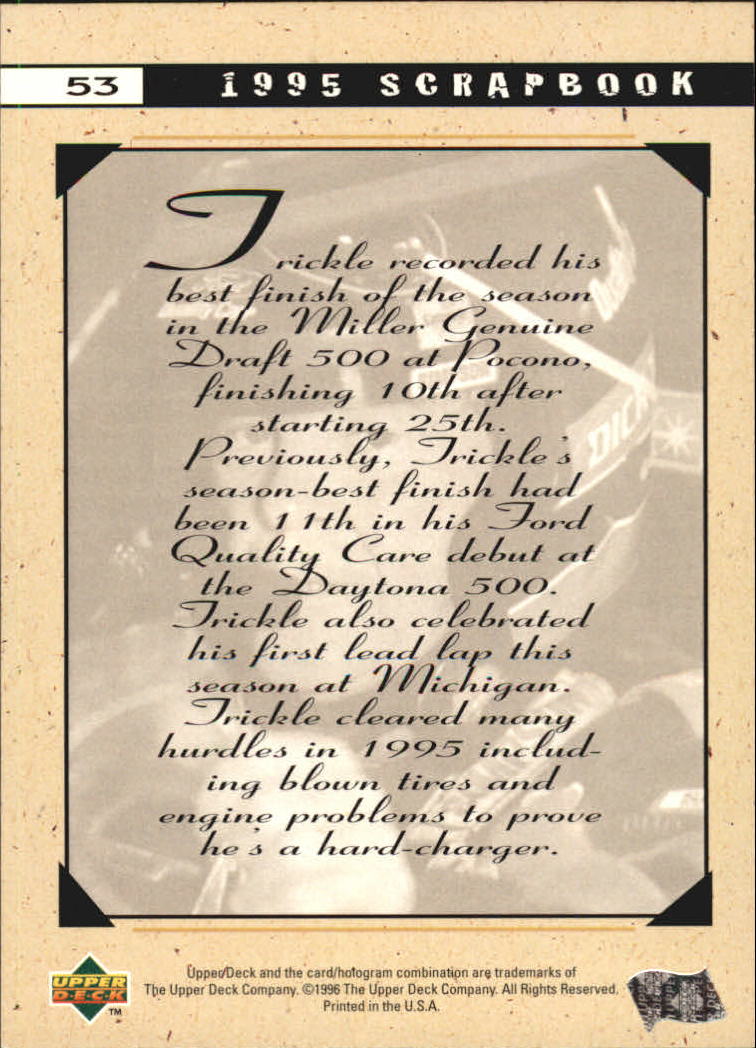 53
1995 SCRAPBOOK
Trickle recorded his
best finish of the season
in the Miller Genuine
Draft 500 at Pocono,
finishing 10th after
starting 25th.
Previously, Trickle's
season-best finish had
been 11th in his Ford
Quality Care debut at
the Daytona 500.
Trickle also celebrated
his first lead lap this
season at Michigan.
Trickle cleared many
hurdles in 1995 includ-
ing blown tires and
engine problems to prove
he's a hard-charger.
DICK
UPPER
DECK
TM
Upper Deck and the card/hologram combination are trademarks of
The Upper Deck Company. ©1996 The Upper Deck Company. All Rights Reserved.
Printed in the U.S.A.